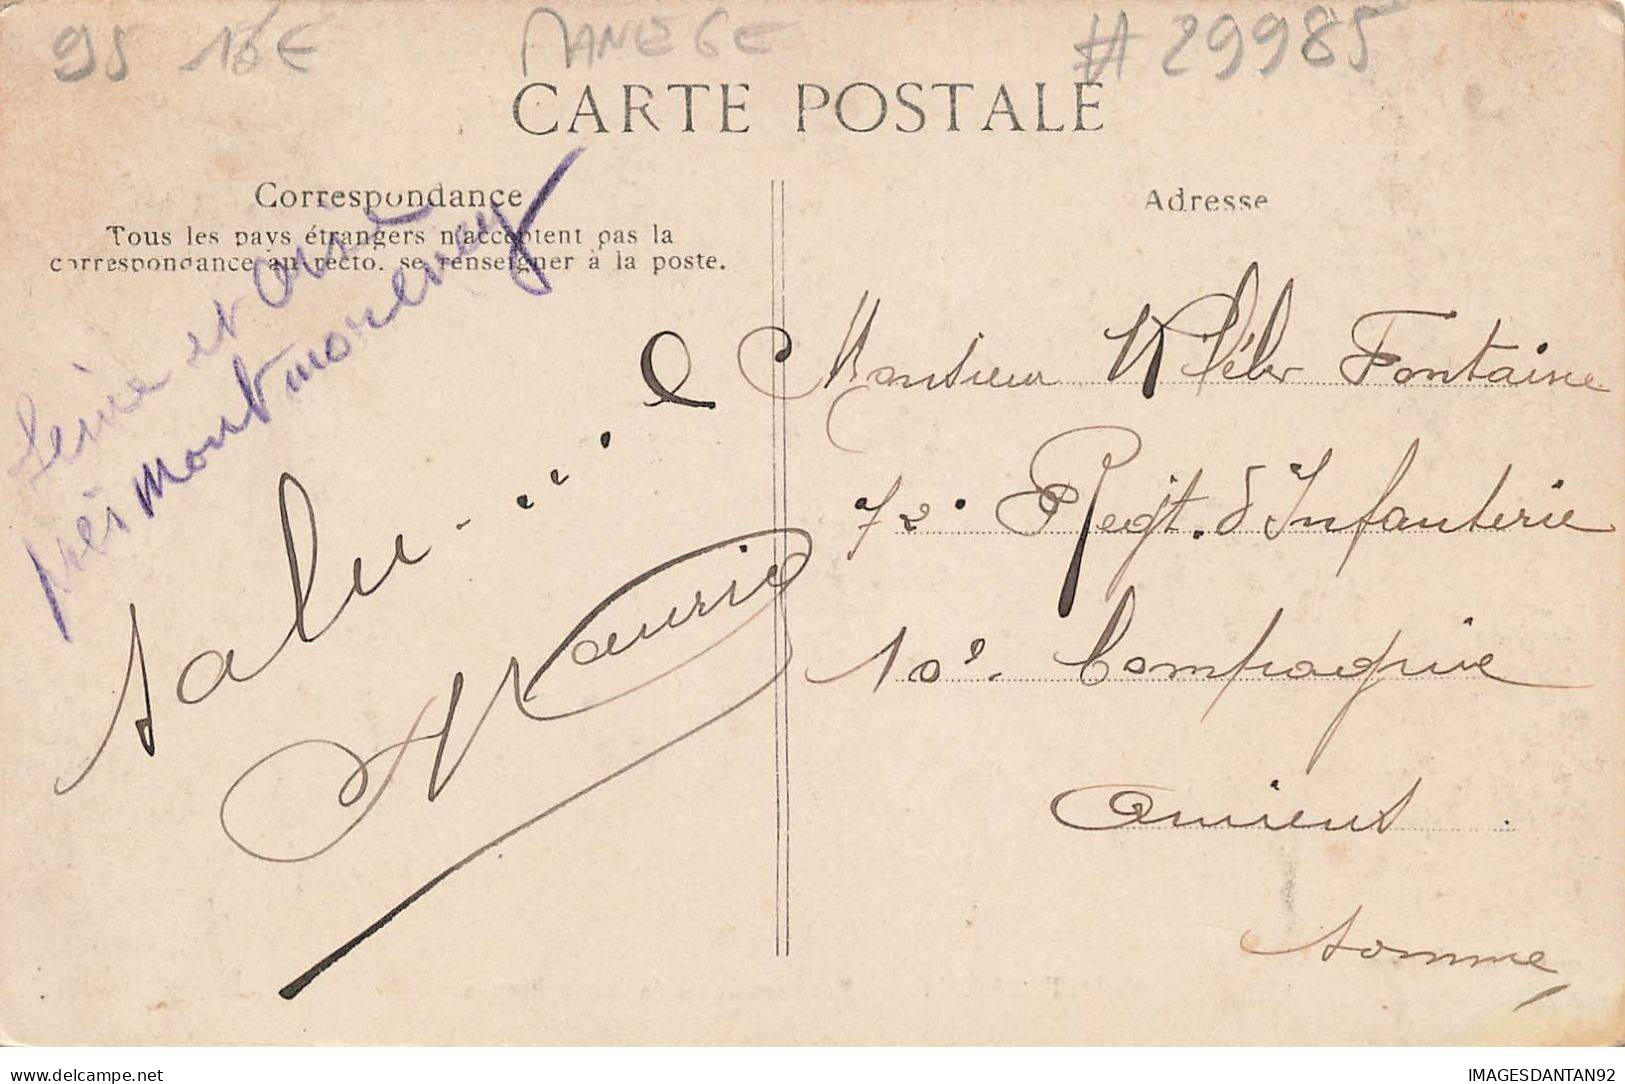 95 15€ MANEGE # 29985
CARTE POSTALE
Correspondance
Tous les pays étrangers n'acceptent pas la
correspondance au recto. se renseigner à la poste.
Adresse
Seine et Oise
près Montmorency
Salu.....e
Maurice
Monsieur Kléber Fontaine
72e Regt. d'Infanterie
10e. Compagnie
Amiens
Somme
delcampe.net
IMAGESDANTAN92